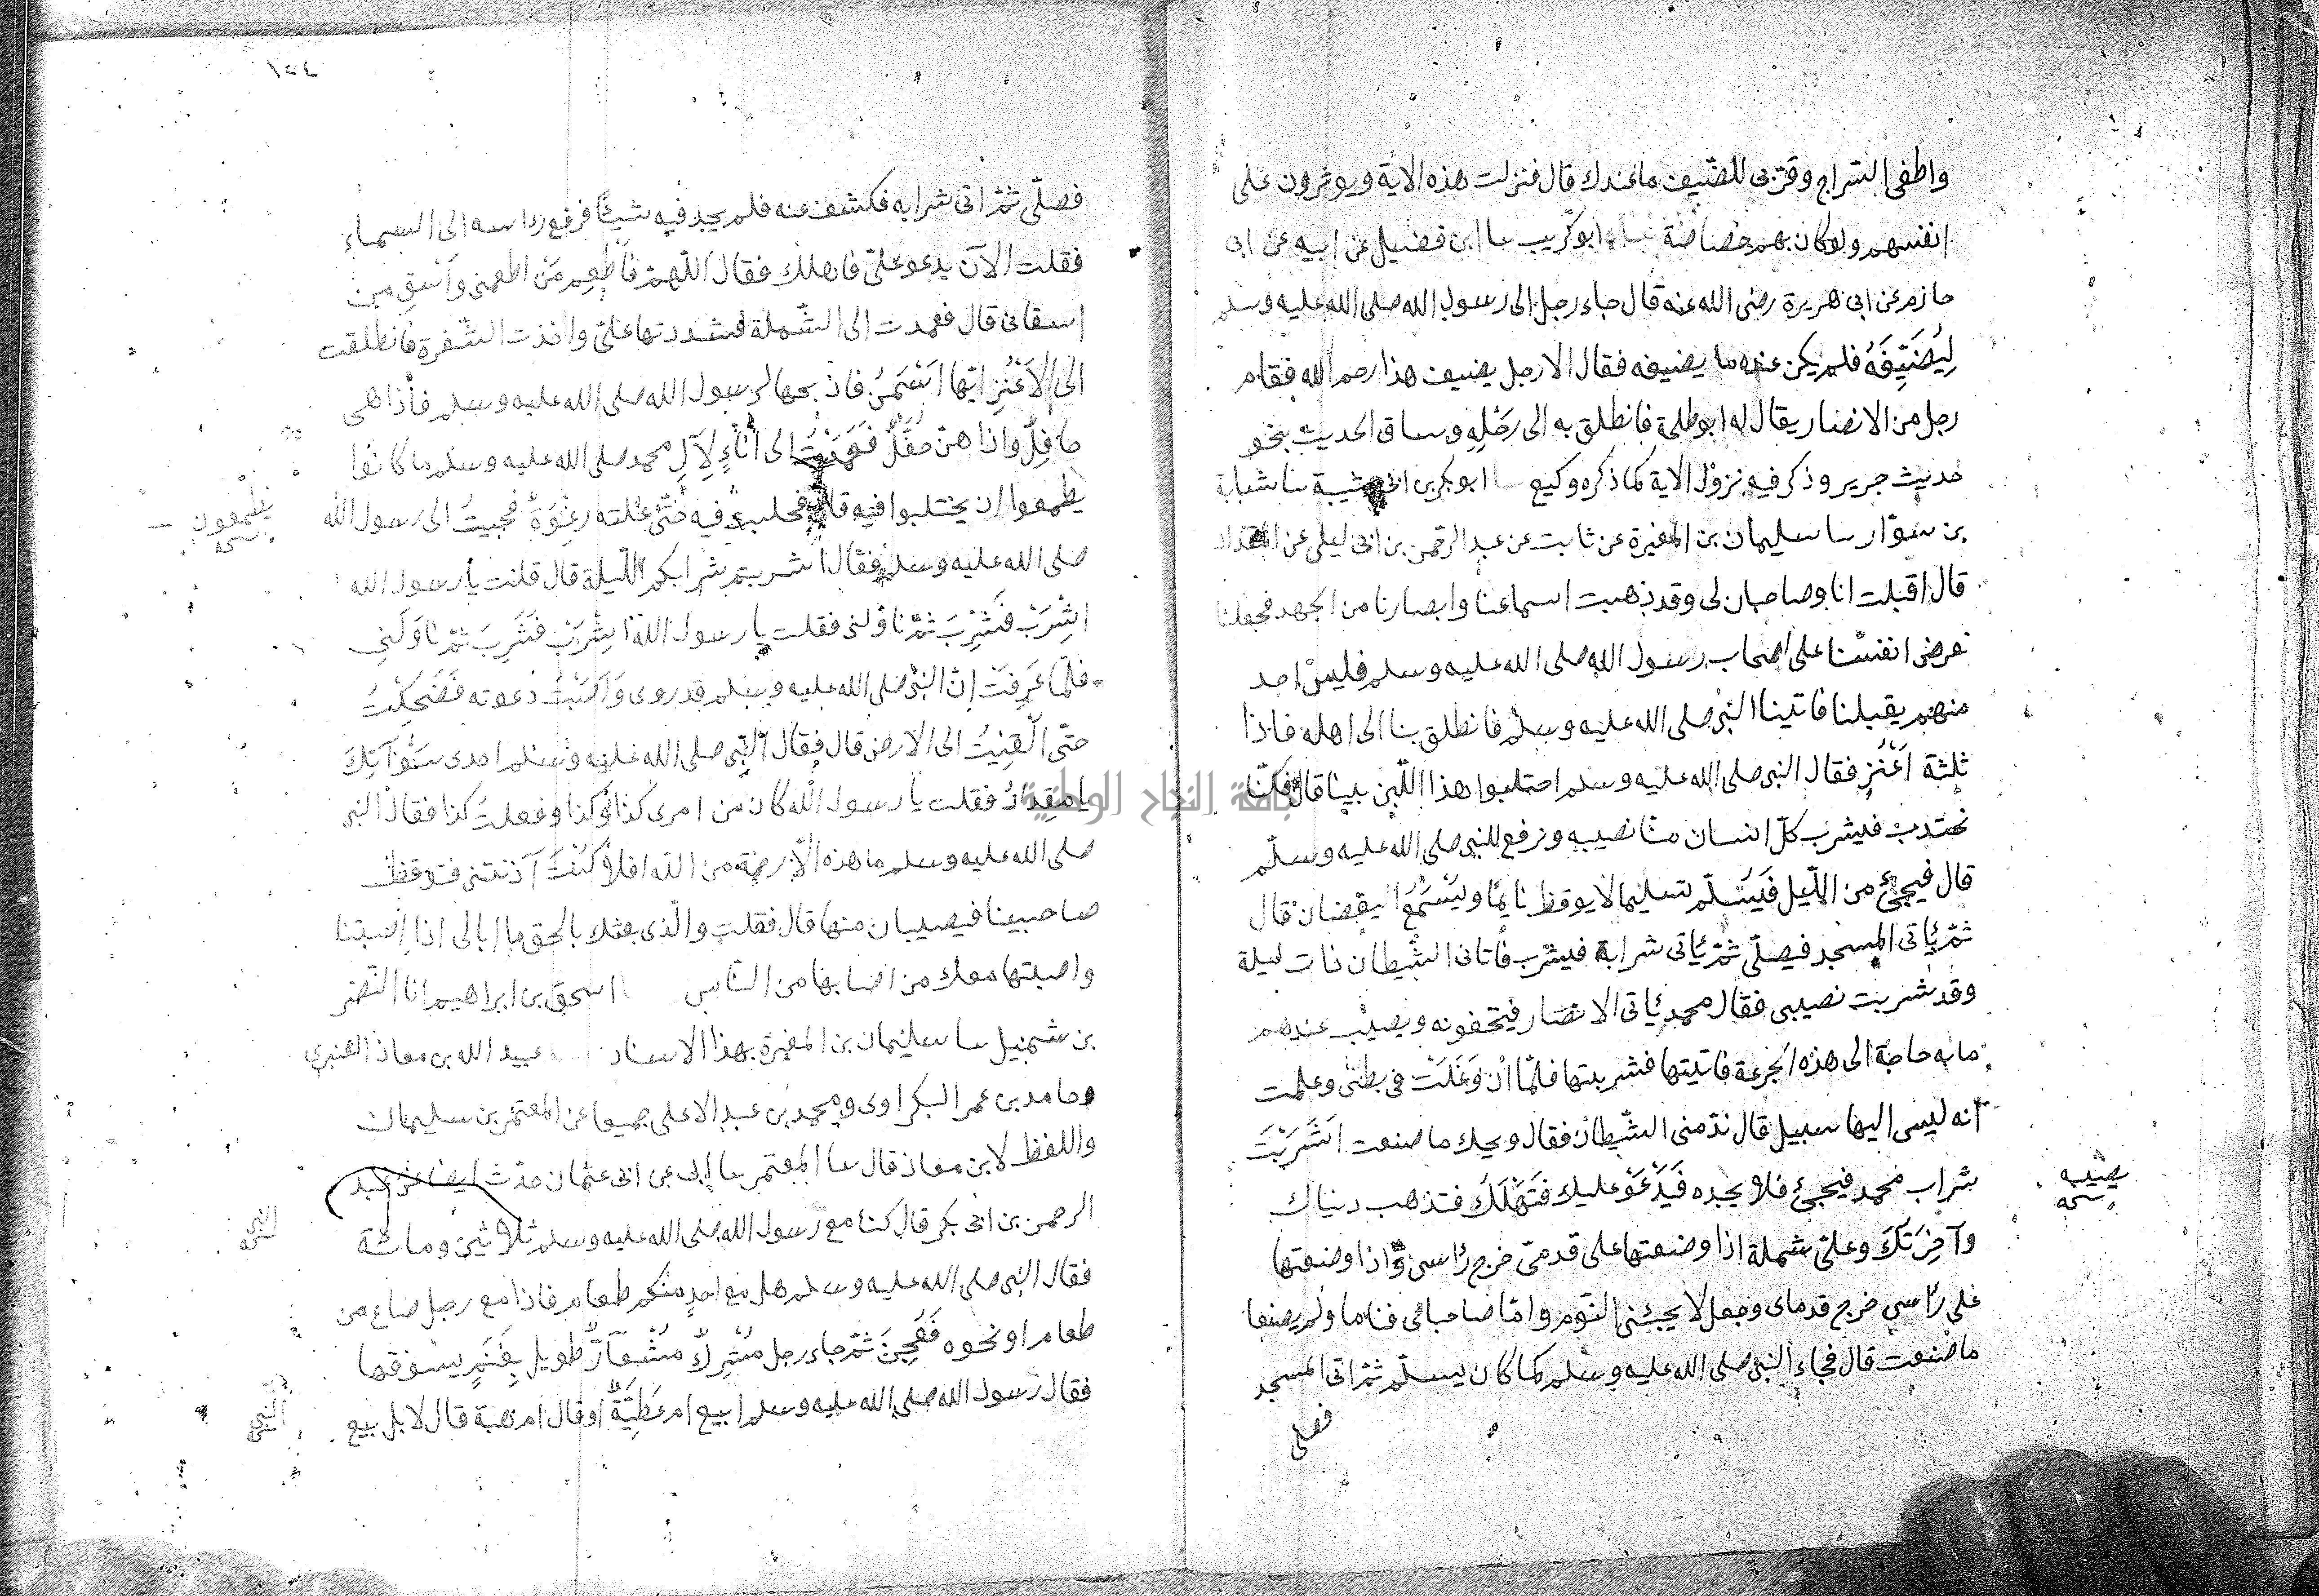 واطفى السراج وقربى للضيف ماعندك قال فنزلت هذه الاية ويوثرون على
انفسهم ولوكان بهم خصاصة ابوكريب سا ابن فضيل عن ابيه عن ابى
حازم عن ابى هريرة رضى الله عنه قال جاء رجل الى رسول الله صلى الله عليه وسلم
لِيُضَيِّفَهُ فلم يكن عنده ما يضيفه فقال الا رجل يضيف هذا رحم الله فقام
رجل من الانصار يقال له ابوطلحة فانطلق به الى رَحْلِهِ وساق الحديث بنحو
حديث جرير وذكر فيه نزول الاية كما ذكره وكيع سا ابوبكر بن ابى شيبة سا شبابة
بن سوّار سا سليمان بن المغيرة عن ثابت عن عبد الرحمن بن ابى ليلى عن المقداد
قال اقبلت انا وصاحبان لى وقد ذهبت اسماعنا وابصارنا من الجهد فجعلنا
نعرض انفسنا على اصحاب رسول الله صلى الله عليه وسلم فليس احد
منهم يقبلنا فاتينا النبى صلى الله عليه وسلم فانطلق بنا الى اهله فاذا
ثلثة اَعْنُزٍ فقال النبى صلى الله عليه وسلم احتلبوا هذا اللّبن بيننا قال فكنّا
نحتلب فيشرب كلّ انسان منّا نصيبه ونرفع للنبى صلى الله عليه وسلّم
قال فيجئ من اللّيل فَيُسَلّم تسليما لا يوقظ نايمًا ويُسْمِعُ اليقضان قال
ثمّ ياتى المسجد فيصلّى ثمّ ياتى شرابه فيشرب فاتانى الشّيطان ذات ليلة
وقد شربت نصيبى فقال محمد ياتى الانصار فيتحفونه ويصيب عندهم
ما به حاجة الى هذه الجرعة فاتيتها فشربتها فلمّا اَنْ وَغَلَتْ فى بطنى وعلمت
انه ليس اليها سبيل قال ندّمنى الشّيطان فقال ويحك ما صنعت اَشَرِبْتَ
شراب محمد فيجئ فلا يجده فَيَدْعُوْ عليك فَتَهْلَكُ فتذهب دنياك
وآخِرَتُكَ وعلىّ شملة اذا وضعتها على قدمىّ خرج راسى واذا وضعتها
على راسى خرج قدماى وجعل لا يجيئنى النّوم وامّا صاحباى فناما ولم يصنعا
ما صنعت قال فجاء النبى صلى الله عليه وسلم كما كان يسلّم ثمّ اتى المسجد
فصلى
يصيبه
نسخه
١٥٤
فصلّى ثمّ اتى شرابه فكشف عنه فلم يجد فيه شيئًا فرفع راسه الى السماء
فقلت الآن يدعو علىّ فاهلك فقال اللّهم فَاَطْعِم مَنْ اطعمنى وَاَسْقِ من
اسقانى قال فعمدت الى الشّملة فشددتها علىّ واخذت الشّفرة فانطلقت
الى الاَعْنُزِ ايّها اَسْمَنُ فاذبحها لرسول الله صلى الله عليه وسلم فاذا هى
حافِلٌ واذا هنّ حُفَّلٌ فَعَمَدْتُ الى اناءٍ لِآلِ محمد صلى الله عليه وسلم ما كانوا
يطمعوا ان يحتلبوا فيه قال فحلبت فيه حتّى علته رغوَةٌ فجيتُ الى رسول الله
صلى الله عليه وسلم فقال اشربتم شرابكم اللّيلة قال قلت يا رسول الله
اشْرَبْ فَشَرِبَ ثمّ ناولنى فقلت يا رسول الله اشْرَبْ فَشَرِبَ ثمّ ناوَلَنِى
فلمّا عَرفتُ انّ النبى صلى الله عليه وسلم قد روى وَاَصَبْتُ دعوته فَضَحِكْتُ
حتّى اُلْقِيْتُ الى الارض قال فقال النّبى صلى الله عليه وسلم احدى سَوْآتِكَ
يا مِقْدَادُ فقلت يا رسول الله كان من امرى كذا وكذا وفعلت كذا فقال النبى
صلى الله عليه وسلم ما هذه الّا رحمة من الله افلا كُنْتَ آذنتنى فتوقظ
صاحبينا فيصيبان منها قال فقلت والّذى بعثك بالحق ما ابالى اذا اصبتها
واصبتها معك من اصابها من النّاس اسحق بن ابراهيم انا النّضر
بن شميل سا سليمان بن المغيرة بهذا الاسناد عبيد الله بن معاذ العنبرى
وحامد بن عمر البكراوى ومحمد بن عبد الاعلى جميعا عن المعتمر بن سليمان
واللفظ لابن معاذ قال سا المعتمر سا ابى عن ابى عثمان حدّث ايضا عن عبد
الرحمن بن ابى بكر قال كنّا مع رسول الله صلى الله عليه وسلم ثلاثين ومائة
فقال النبى صلى الله عليه وسلم هل مع احدٍ منكم طعام فاذا مع رجل صاع من
طعام او نحوه فَعُجِنَ ثمّ جاء رجل مُشْرِكٌ مُشْعَآنٌّ طويل بِغَنَمٍ يسوقها
فقال رسول الله صلى الله عليه وسلم ابيع ام عَطِيَّةٌ او قال ام هبة قال لا بل بيع
يطمعون
نسخه
النبى
نسخه
النبى
جامعة النجاح الوطنية